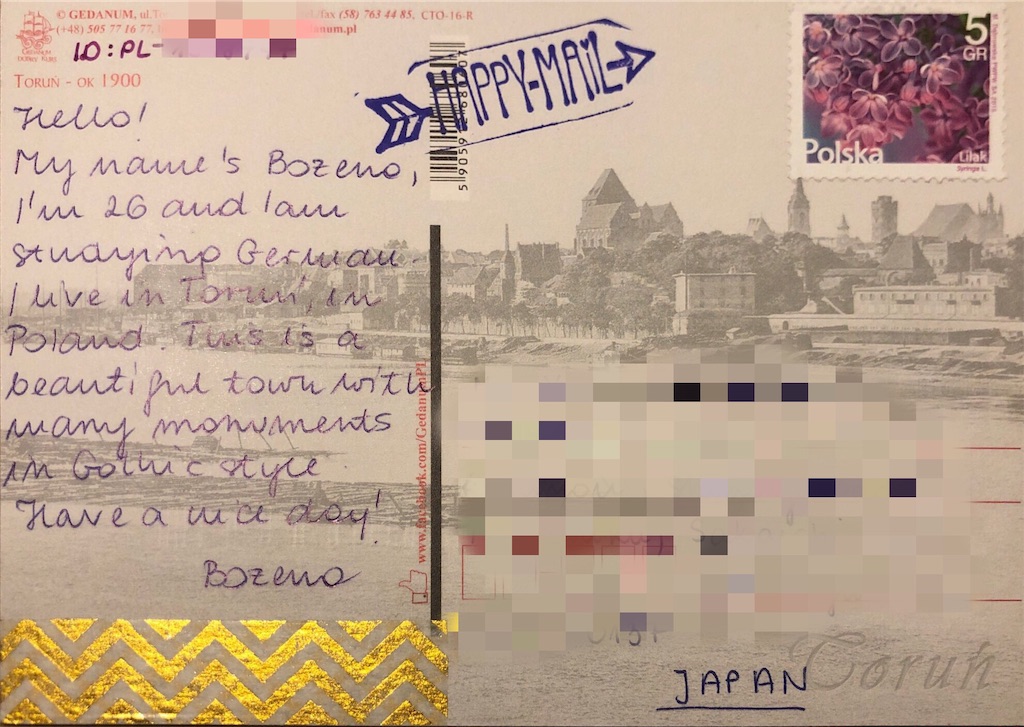 © GEDANUM, ul.T
/fax (58) 763 44 85, CTO-16-R
(+48) 505 77 16 77,
danum.pl
GEDANUM
ID: PL-
TORUŃ - OK 1900
Hello!
My name's Bozena,
I'm 26 and I am
studying German.
I live in Toruń, in
Poland. This is a
beautiful town with
many monuments
in Gothic style
Have a nice day!
Bozena
HAPPY-MAIL
www.facebook.com/GedanumPL
5
GR
Polska
Lilak
Syringa L.
JAPAN
Toruń